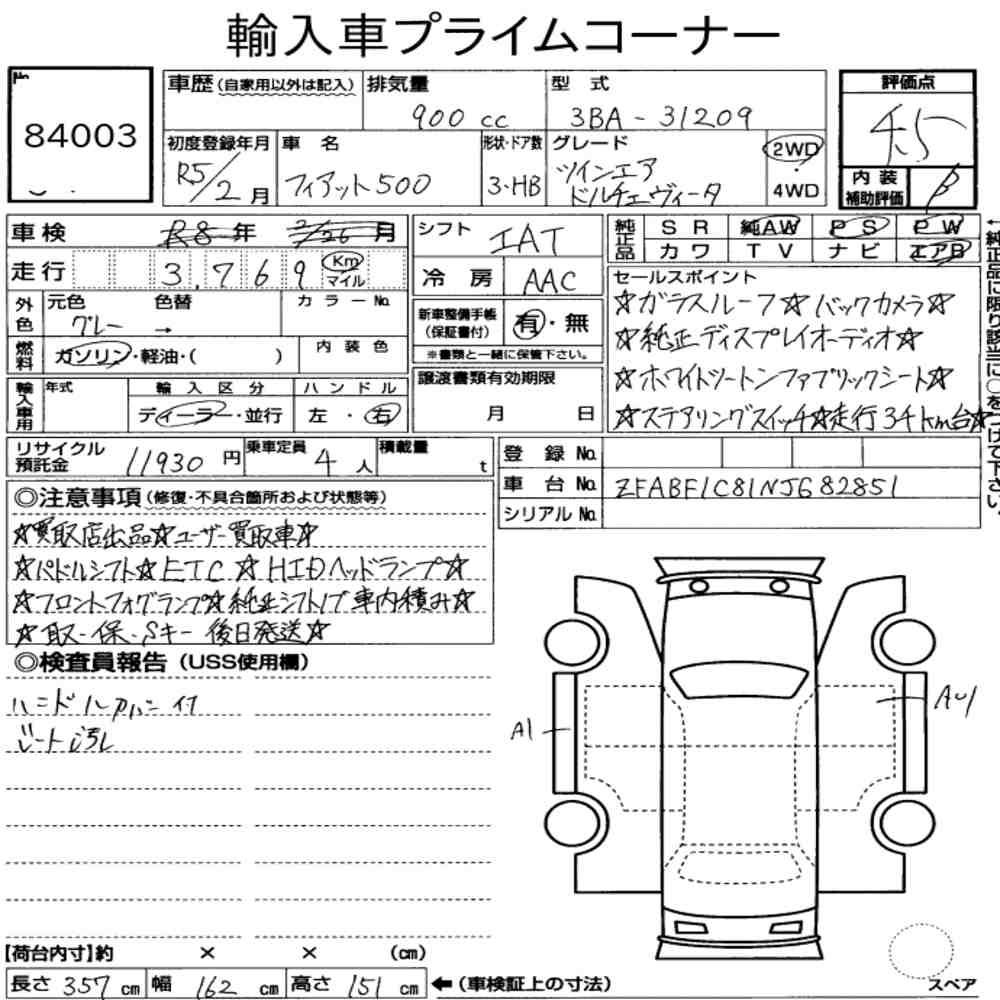 輸入車プライムコーナー
No.
84003
車歴(自家用以外は記入)
排気量
900 cc
型式
3BA-31209
評価点
4.5
内装
補助評価
B
初度登録年月
R5/2月
車名
フィアット500
形状・ドア数
3・HB
グレード
ツインエア
ドルチェヴィータ
2WD
・
4WD
車検
R8年 2/26月
走行
3,769
Km
マイル
外色
元色
グレー
色替
→
カラーNo.
燃料
ガソリン・軽油・( )
内装色
輸入車用
年式
輸入区分
ディーラー・並行
ハンドル
左・右
シフト
IAT
冷房
AAC
新車整備手帳
(保証書付)
有・無
※書類と一緒に保管下さい。
譲渡書類有効期限
月 日
純正品
SR 純AW PS PW
カワ TV ナビ エアB
セールスポイント
☆ガラスルーフ☆バックカメラ☆
☆純正ディスプレイオーディオ☆
☆ホワイトツートンファブリックシート☆
☆ステアリングスイッチ☆走行34km台☆
←純正品に限り該当に○をつけて下さい。
リサイクル
預託金
11930円
乗車定員
4人
積載量
t
登録No.
車台No.
ZFABF1C81NJG82851
シリアルNo.
◎注意事項(修復・不具合箇所および状態等)
☆買取店出品☆ユーザー買取車☆
☆パドルシフト☆ETC☆HIDヘッドランプ☆
☆フロントフォグランプ☆純正シフトノブ車内積み☆
☆取・保・Sキー後日発送☆
◎検査員報告(USS使用欄)
ハンドルカバー付
シート汚れ
A1
AU1
【荷台内寸】約 × × (cm)
長さ357cm 幅162cm 高さ151cm ←(車検証上の寸法)
スペア